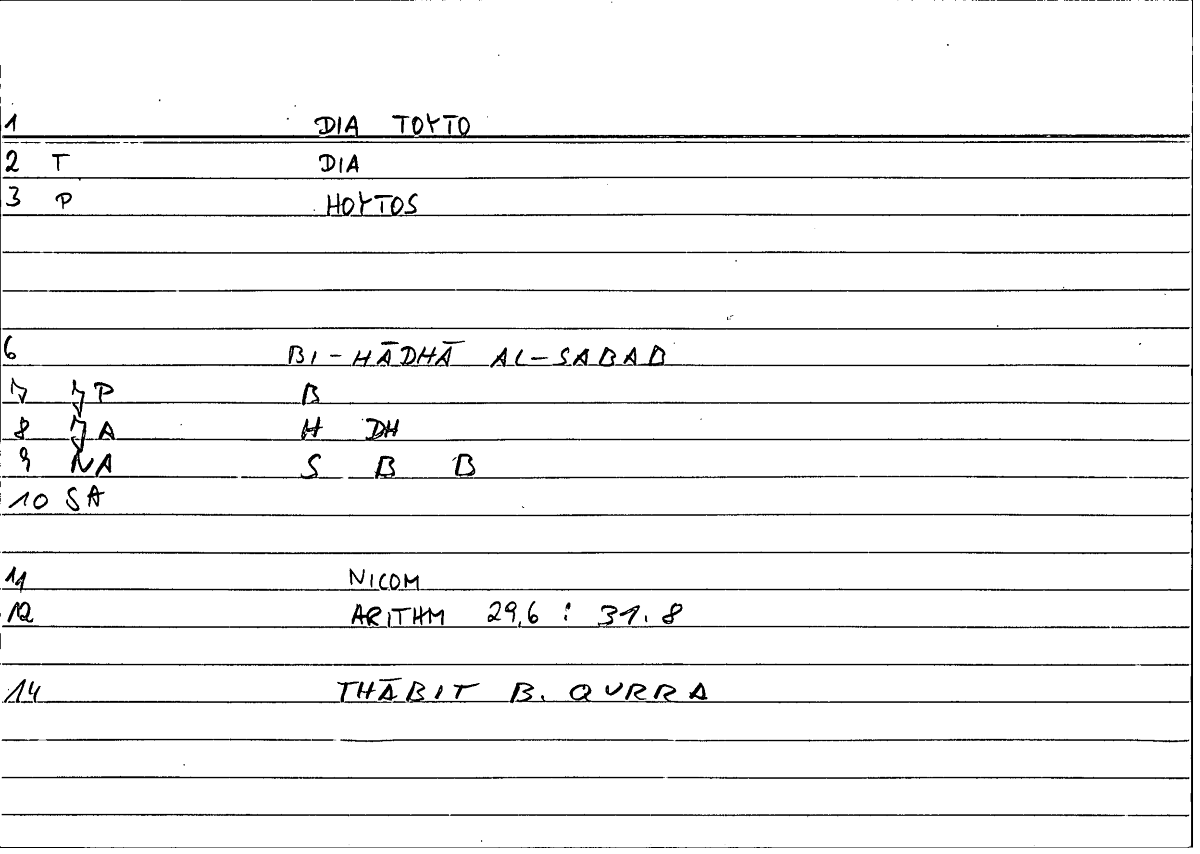 1 DIA TOYTO
2 T DIA
3 P HOYTOS
6 BI-HĀDHĀ AL-SABAB
7 P B
8 A H DH
9 NA S B B
10 SA
11 NICOM
12 ARITHM 29,6 : 31.8
14 THĀBIT B. QURRA